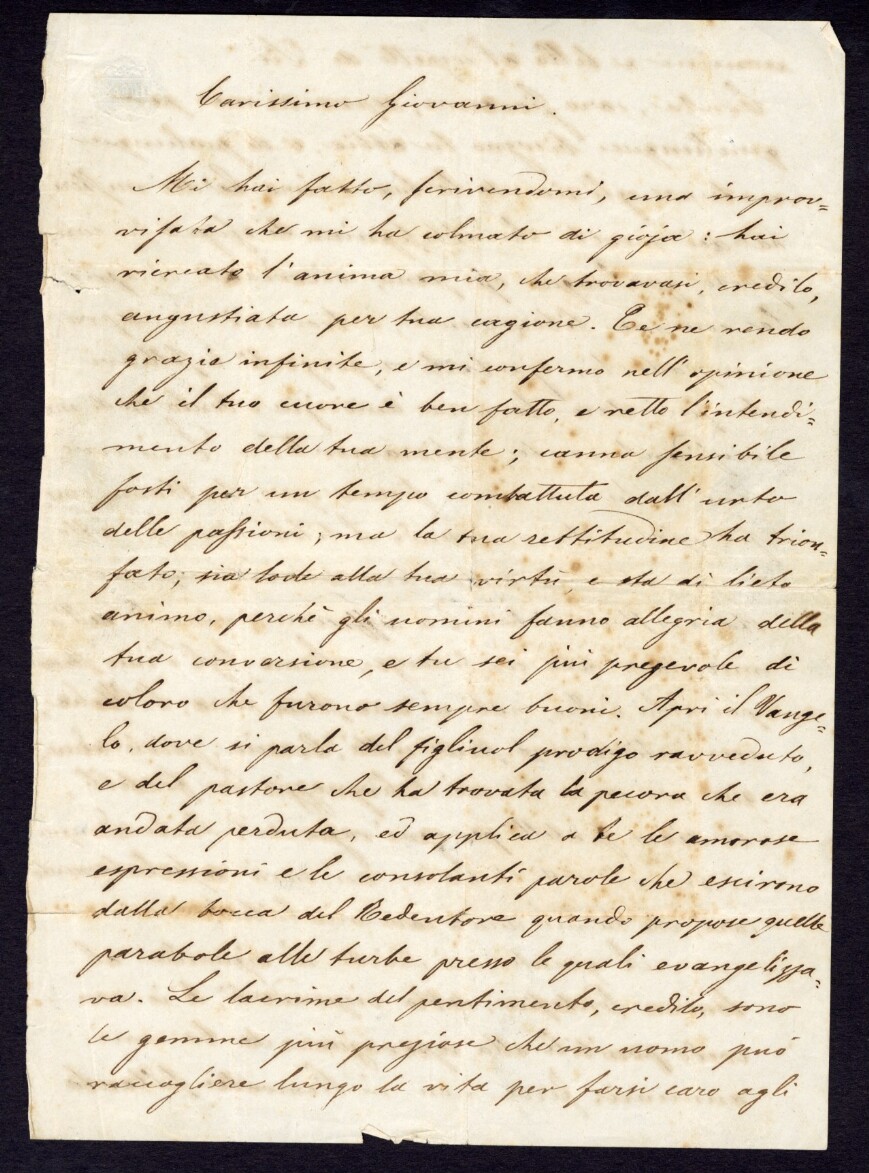 Carissimo Giovanni.
Mi hai fatto, scrivendomi, una improv=
visata che mi ha colmato di gioja: hai
ricreato l'anima mia, che trovavasi, credilo,
angustiata per tua cagione. Te ne rendo
grazie infinite, e mi confermo nell'opinione
che il tuo cuore è ben fatto, e retto l'intendi=
mento della tua mente; canna sensibile
fosti per un tempo combattuta dall'urto
delle passioni; ma la tua rettitudine ha trion=
fato; sia lode alla tua virtù, e sta di lieto
animo, perchè gli uomini fanno allegria della
tua conversione, e tu sei più pregevole di
coloro che furono sempre buoni. Apri il Vange=
lo, dove si parla del figliuol prodigo ravveduto,
e del pastore che ha trovata la pecora che era
andata perduta, ed applica a te le amorose
espressioni e le consolanti parole che escirono
dalla bocca del Redentore quando propose quelle
parabole alle turbe presso le quali evangelizza=
va. Le lacrime del pentimento, credilo, sono
le gemme più preziose che un uomo può
raccogliere lungo la vita per farsi caro agli